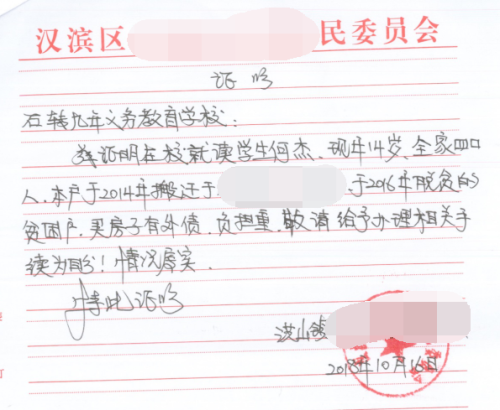 汉滨区 民委员会
证明
石转九年义务教育学校:
兹证明在校就读学生何杰、现年14岁、全家四口
人、本户于2014年搬迁于 、于2016年脱贫的
贫困户、买房子有外债、负担重、敬请给予办理相关手
续为盼!情况属实、
特此证明
洪山镇
2018年10月16日